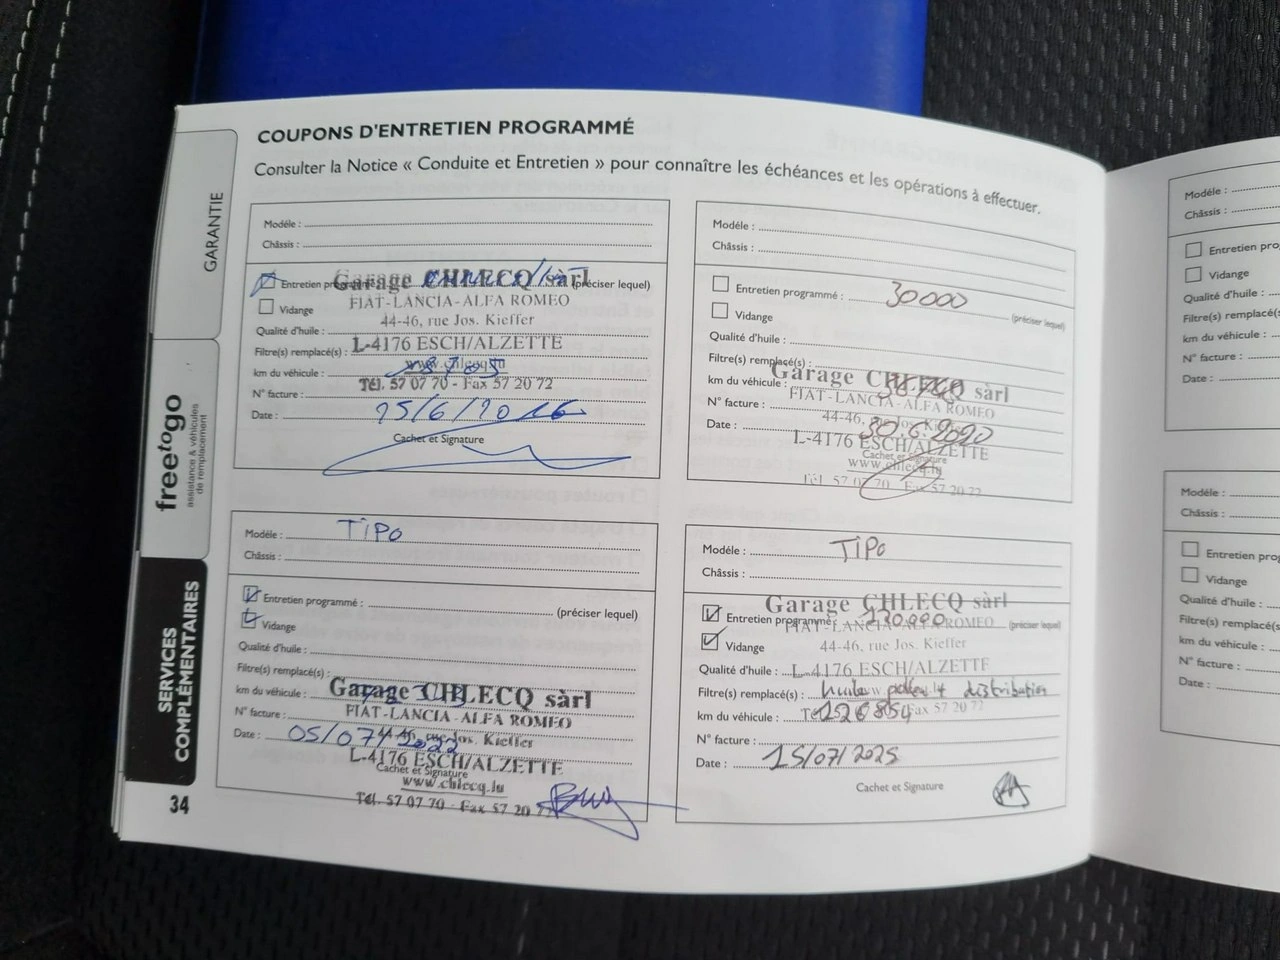 COUPONS D'ENTRETIEN PROGRAMMÉ
Consulter la Notice « Conduite et Entretien » pour connaître les échéances et les opérations à effectuer.
GARANTIE
freetogo
assistance & véhicules
de remplacement
SERVICES
COMPLÉMENTAIRES
34
Modèle :
Châssis :
Entretien programmé (préciser lequel)
Garage CHLECQ sàrl
Vidange
FIAT-LANCIA-ALFA ROMEO
44-46, rue Jos. Kieffer
Qualité d'huile :
L-4176 ESCH/ALZETTE
Filtre(s) remplacé(s) :
www.chlecq.lu
km du véhicule :
Tél. 57 07 70 - Fax 57 20 72
N° facture :
Date : 25/6/2016
Cachet et Signature
Modèle :
Châssis :
Entretien programmé : 30000 (préciser lequel)
Vidange
Qualité d'huile :
Filtre(s) remplacé(s) :
Garage CHLECQ sàrl
km du véhicule :
FIAT-LANCIA-ALFA ROMEO
N° facture :
44-46, rue Jos. Kieffer
Date : 30.6.2020
L-4176 ESCH/ALZETTE
Cachet et Signature
www.chlecq.lu
Tél. 57 07 70 - Fax 57 20 72
Modèle : TIPO
Châssis :
Entretien programmé : (préciser lequel)
Vidange
Qualité d'huile :
Filtre(s) remplacé(s) :
km du véhicule :
Garage CHLECQ sàrl
N° facture :
FIAT-LANCIA-ALFA ROMEO
Date : 05/07/2022
44-46, rue Jos. Kieffer
L-4176 ESCH/ALZETTE
Cachet et Signature
www.chlecq.lu
Tél. 57 07 70 - Fax 57 20 72
Modèle : TIPO
Châssis :
Garage CHLECQ sàrl
Entretien programmé : 120.000 (préciser lequel)
FIAT-LANCIA-ALFA ROMEO
Vidange
44-46, rue Jos. Kieffer
Qualité d'huile :
L-4176 ESCH/ALZETTE
Filtre(s) remplacé(s) : huile pollen distribution
km du véhicule : 126854
Fax 57 20 72
N° facture :
Date : 15/07/2025
Cachet et Signature
Modèle :
Châssis :
Entretien pro
Vidange
Qualité d'huile :
Filtre(s) remplacé(s
km du véhicule :
N° facture :
Date :
Modèle :
Châssis :
Entretien prog
Vidange
Qualité d'huile :
Filtre(s) remplacé(s
km du véhicule :
N° facture :
Date :